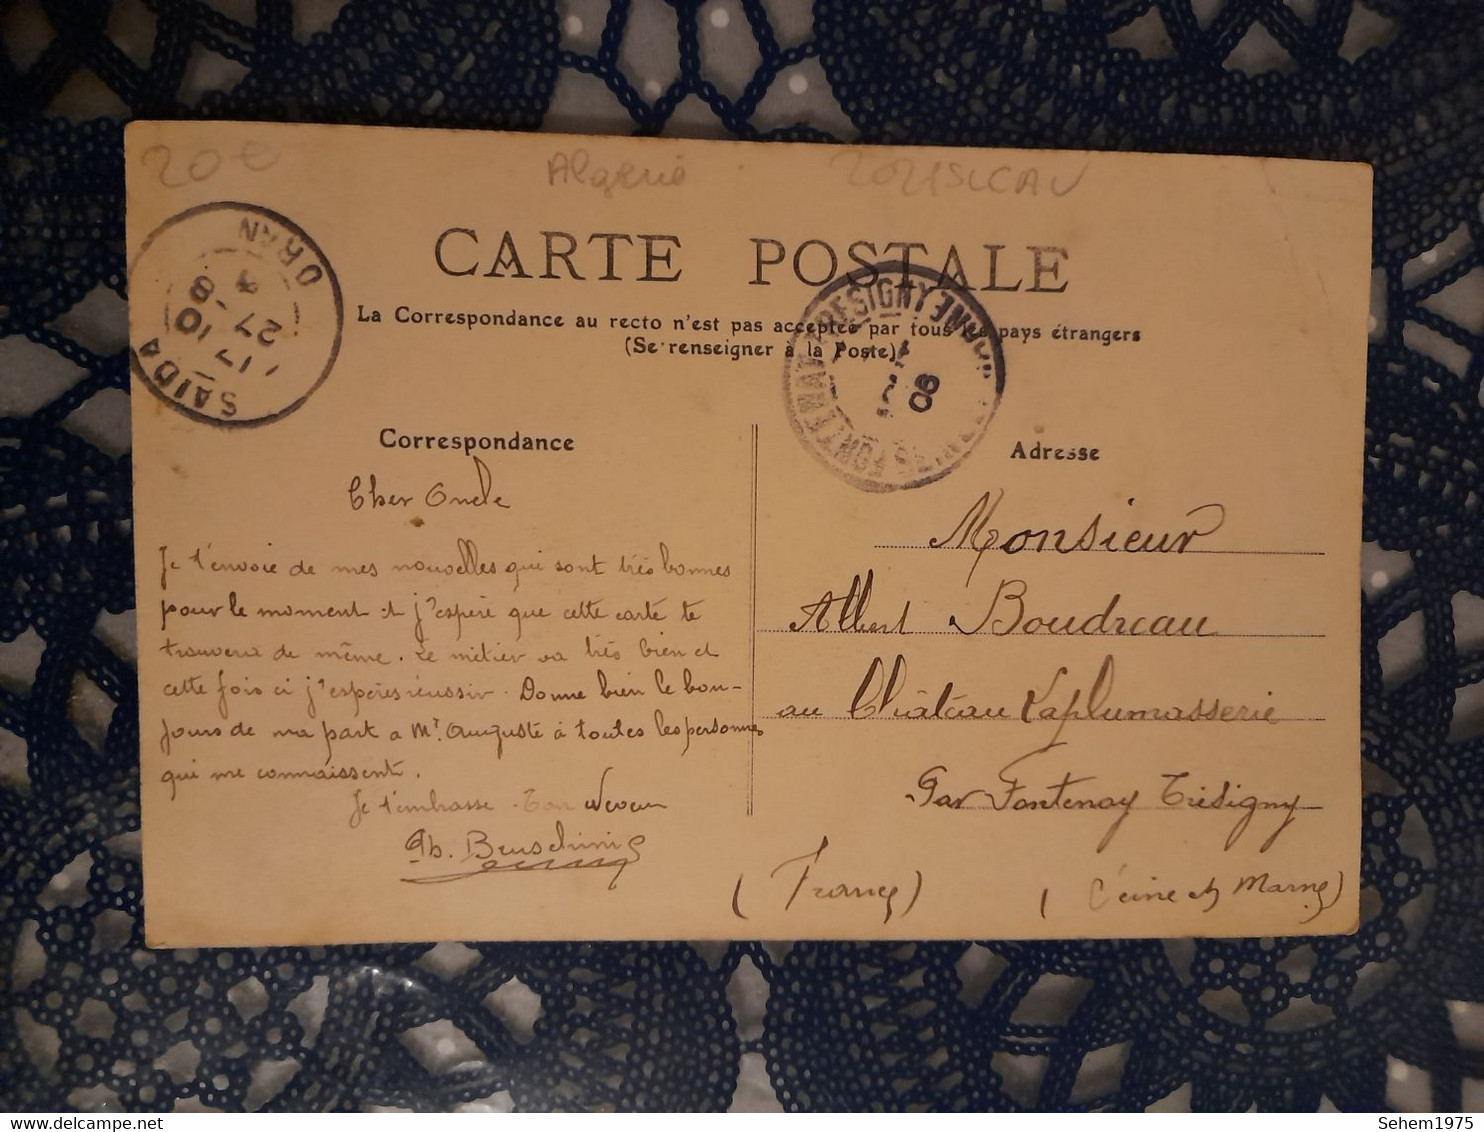 20€ Algérie
CARTE POSTALE
La Correspondance au recto n'est pas acceptée par tous les pays étrangers
(Se renseigner à la Poste)
SAIDA
ORAN
17 10
27 -8
FONTENAY TRESIGNY
SEINE-ET-MARNE
08
Correspondance
Cher Oncle
Je t'envoie de mes nouvelles qui sont très bonnes
pour le moment et j'espère que cette carte te
trouvera de même. Le métier va très bien et
cette fois ci j'espères réussir. Donne bien le bon-
jours de ma part a Mr. Auguste à toutes les personnes
qui me connaissent.
Je t'embrasse. Ton Neveu
Adresse
Monsieur
Albert Boudreau
au Château Laplumasserie
Par Fontenay Trésigny
(France) (Seine et Marne)
Sehem1975